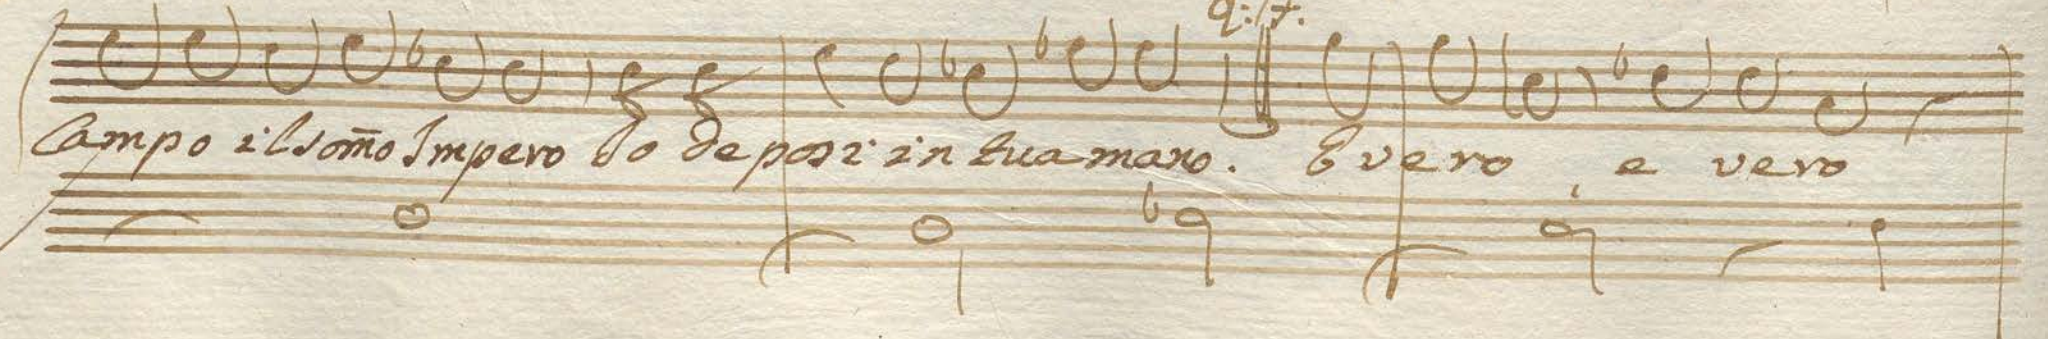 Campo il som̄o Impero Io deposi in tua mano. E vero e vero